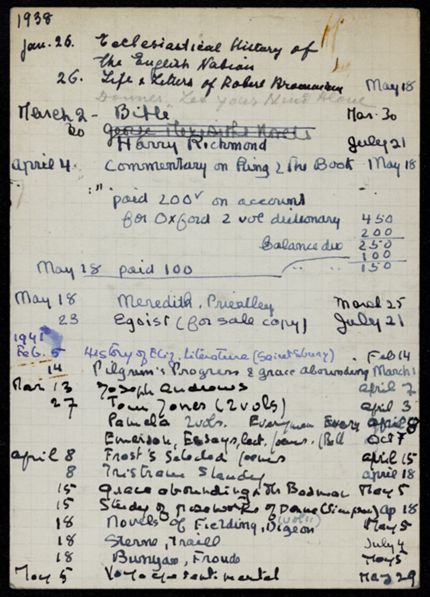 1938
Jan. 26. Ecclesiastical History of
the English Nation
26. Life & Letters of Robert Browning May 18
Let your Mind Alone
March 2 - Bible Mar. 30
20 George Meredith's Novels
Harry Richmond July 21
April 4. Commentary on Ring & the Book May 18
" paid 200 on account
for Oxford 2 vol dictionary 450
200
Balance due 250
100
May 18 paid 100 150
May 18 Meredith, Priestley March 25
23 Egoist (for sale copy) July 21
194
Feb. 5 History of Eliz. Literature (Saintsbury) Feb 14
14 Pilgrim's Progress & grace abounding March 1
Mar. 13 Joseph Andrews April 2
27 Tom Jones (2 vols) April 3
Pamela 2 vols. Everyman Every April 8
Emerson, Essays, lect. poems. Oct 7
April 8 Frost's Selected poems April 15
8 Tristram Shandy April 18
15 grace abounding & Mr Badman May 5
15 Study of prose works of Donne (Simpson) Ap 18
18 Novels of Fielding, Digeon May 5
18 Sterne, Traill July 4
18 Bunyan, Froude May 5
May 5 Voyage sentimental May 29